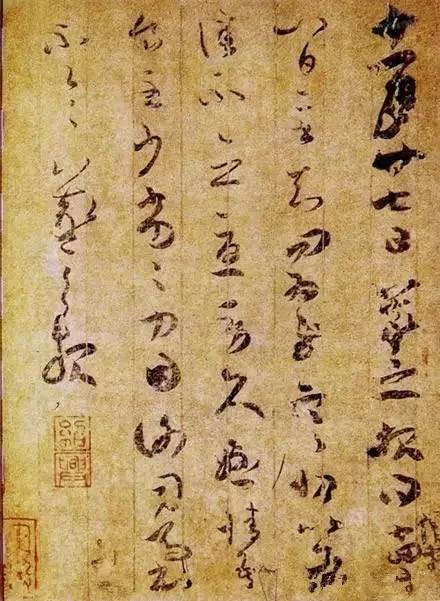 十一月廿七日羲之報得十四
十八日二書知問為慰寒切比各
佳不念憂勞久懸情吾
食至少劣劣力因謝司馬書
不一一羲之報
紹興